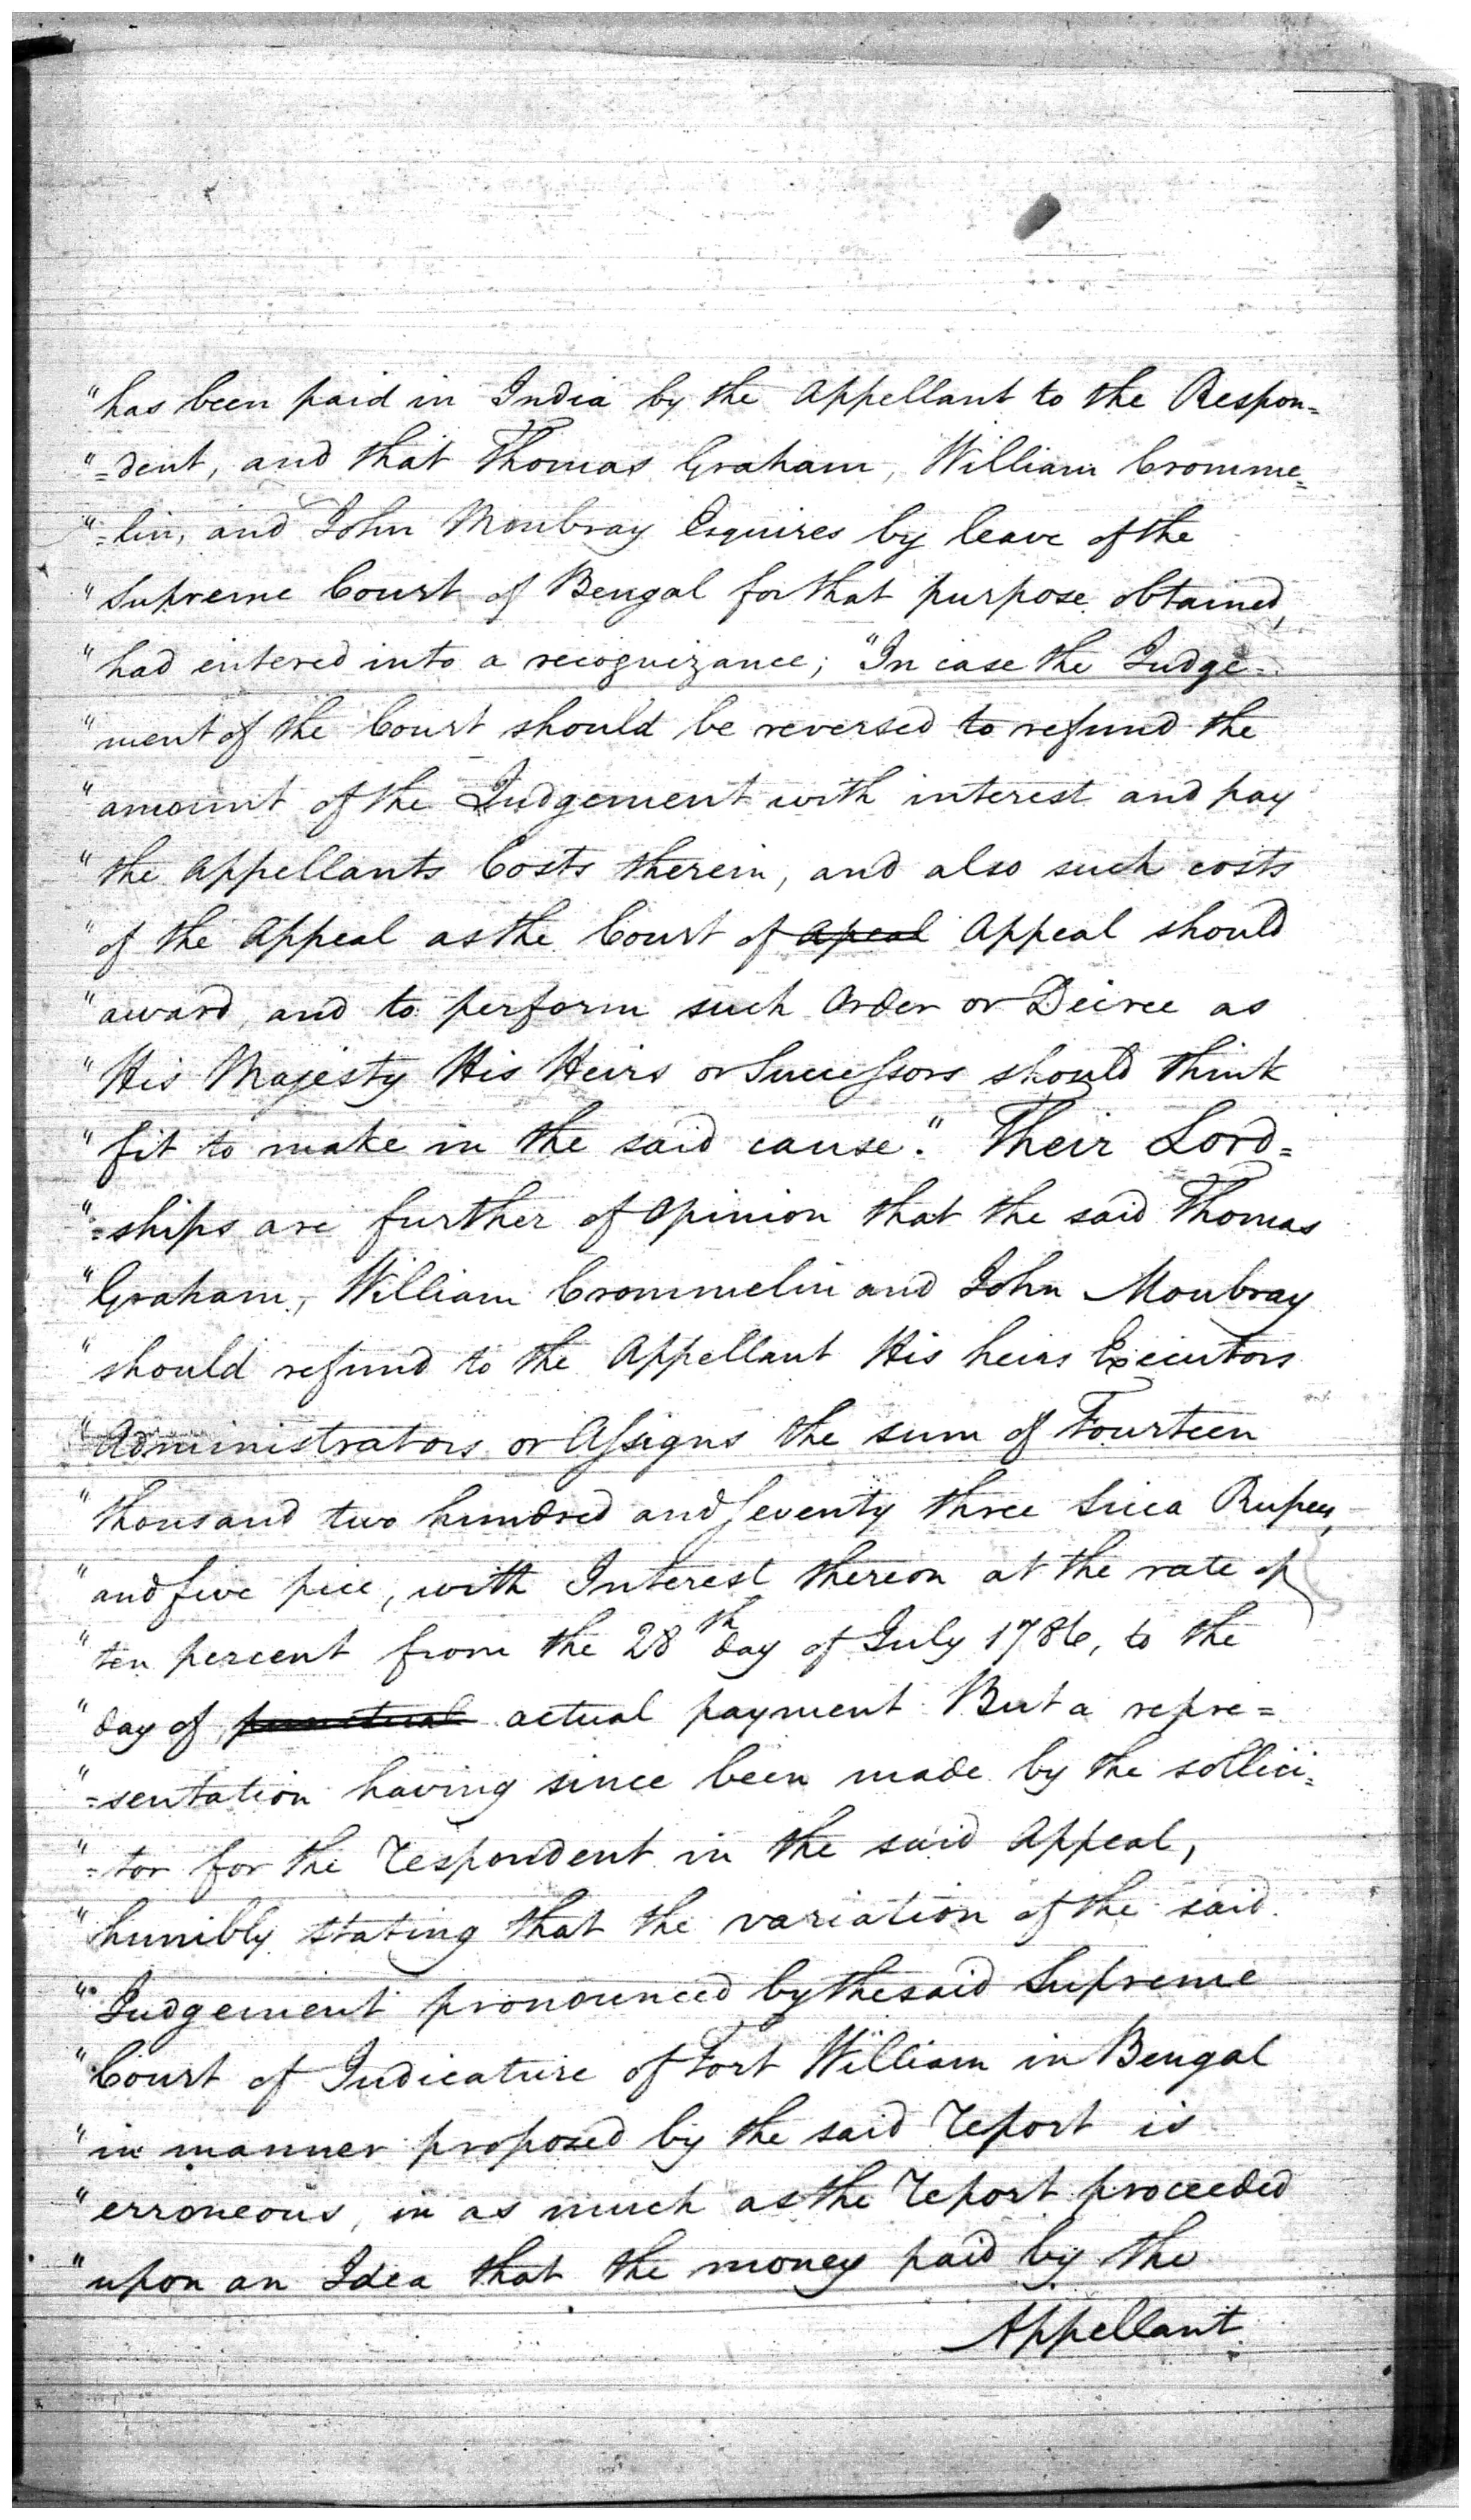 "has been paid in India by the Appellant to the Respon=
"=dent, and that Thomas Graham, William Cromme=
"=lin, and John Moubray Esquires by leave of the
"Supreme Court of Bengal for that purpose obtained,
"had entered into a recognizance; "In case the Judge=
"ment of the Court should be reversed to refund the
"amount of the Judgement with interest and pay
"the Appellants Costs therein, and also such costs
"of the Appeal as the Court of apeal Appeal should
"award, and to perform such Order or Decree as
"His Majesty His Heirs or Successors should think
"fit to make in the said cause." Their Lord=
"=ships are further of Opinion that the said Thomas
"Graham, William Crommelin and John Moubray
"should refund to the Appellant His heirs Executors
"Administrators or Assigns the sum of Fourteen
"thousand two hundred and Seventy three Sicca Rupees,
"and five pice, with Interest thereon at the rate of
"ten percent from the 28th day of July 1786, to the
"day of punctual actual payment But a repre=
"=sentation having since been made by the sollici=
"=tor for the respondent in the said Appeal,
"humbly stating that the variation of the said
"Judgement pronounced by the said Supreme
"Court of Judicature of Fort William in Bengal
"in manner proposed by the said report is
"erroneous, in as much as the report proceeded
"upon an Idea that the money paid by the
Appellant